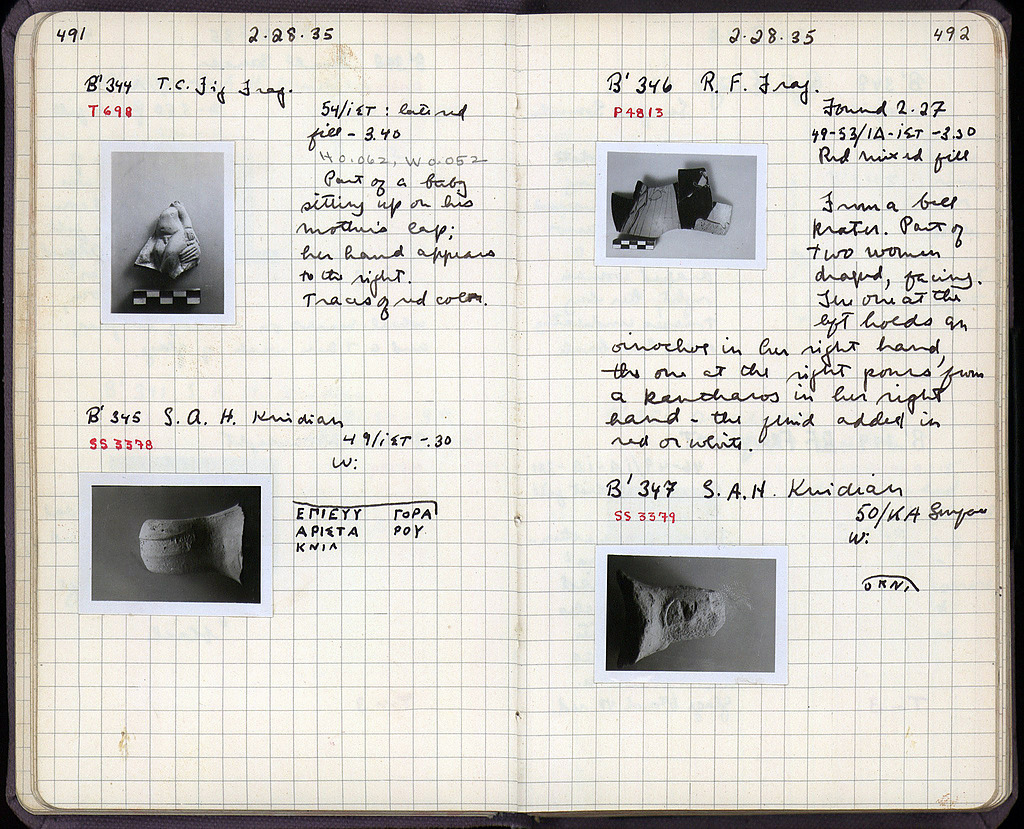 491 2·28·35
B' 344 T.C. Fig Frag.
T 698
54/ΙΣΤ : late red
fill - 3.40
H 0.062, W 0.052
Part of a baby
sitting up on his
mother's lap;
her hand appears
to the right.
Traces of red color.
B' 345 S.A.H. Knidian
SS 3378
49/ΙΣΤ -.30
W:
ΕΠΙΕΥΥ ΓΟΡΑ
ΑΡΙΣΤΑ ΡΟΥ
ΚΝΙΛ
2·28·35 492
B' 346 R.F. Frag.
P 4813
Found 2.27
49-53/ΙΔ-ΙΣΤ -3.30
Red mixed fill
From a bell
krater. Part of
two women
draped, facing.
The one at the
left holds an
oinochoe in her right hand,
the one at the right pours from
a kantharos in her right
hand - the fluid added in
red or white.
B' 347 S.A.H. Knidian
SS 3379
50/ΚΑ
W:
ΟΚΝΙ